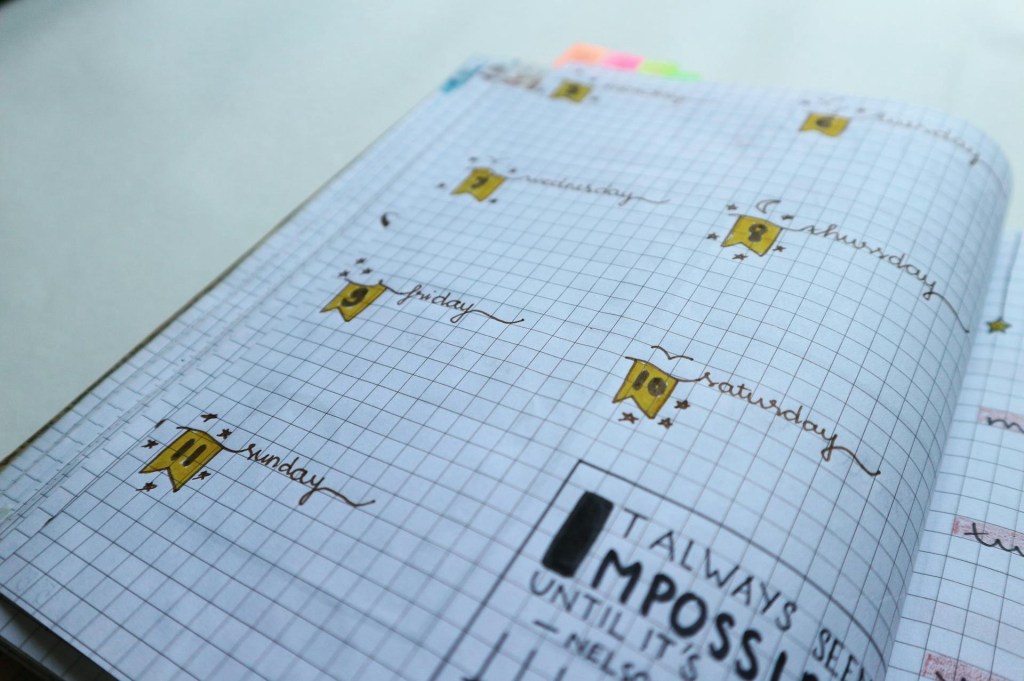 5
6
7 wednesday
8 thursday
9 friday
10 saturday
11 sunday
IT ALWAYS SEE
IMPOSSI
UNTIL IT'S
– NELSO